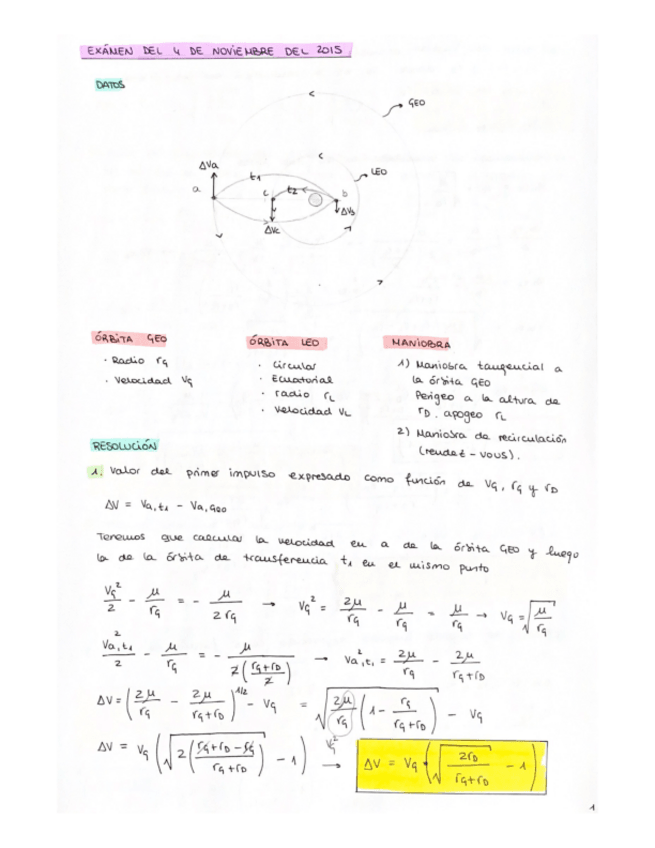 EXÁMEN DEL 4 DE NOVIEMBRE DEL 2015
DATOS
GEO
LEO
ΔVa
a
t1
c
t2
b
ΔVb
ΔVc
ÓRBITA GEO
· Radio rG
· Velocidad VG
ÓRBITA LEO
· Circular
· Ecuatorial
· radio rL
· velocidad VL
MANIOBRA
1) Maniobra tangencial a
la órbita GEO
Perigeo a la altura de
rD, apogeo rL
2) Maniobra de recirculación
(rendez-vous).
RESOLUCIÓN
1. Valor del primer impulso expresado como función de VG, rG y rD
ΔV = Va,t1 - Va,GEO
Tenemos que calcular la velocidad en a de la órbita GEO y luego
la de la órbita de transferencia t1 en el mismo punto
VG²/2 - μ/rG = - μ/2rG → VG² = 2μ/rG - μ/rG = μ/rG → VG = √(μ/rG)
Va,t1²/2 - μ/rG = - μ/(2((rG+rD)/2)) → Va²,t1 = 2μ/rG - 2μ/(rG+rD)
ΔV = (2μ/rG - 2μ/(rG+rD))^1/2 - VG = √(2μ/rG (1 - rG/(rG+rD))) - VG
VG²
ΔV = VG (√(2((rG+rD-rG)/(rG+rD))) - 1) → ΔV = VG · (√(2rD/(rG+rD)) - 1)
1